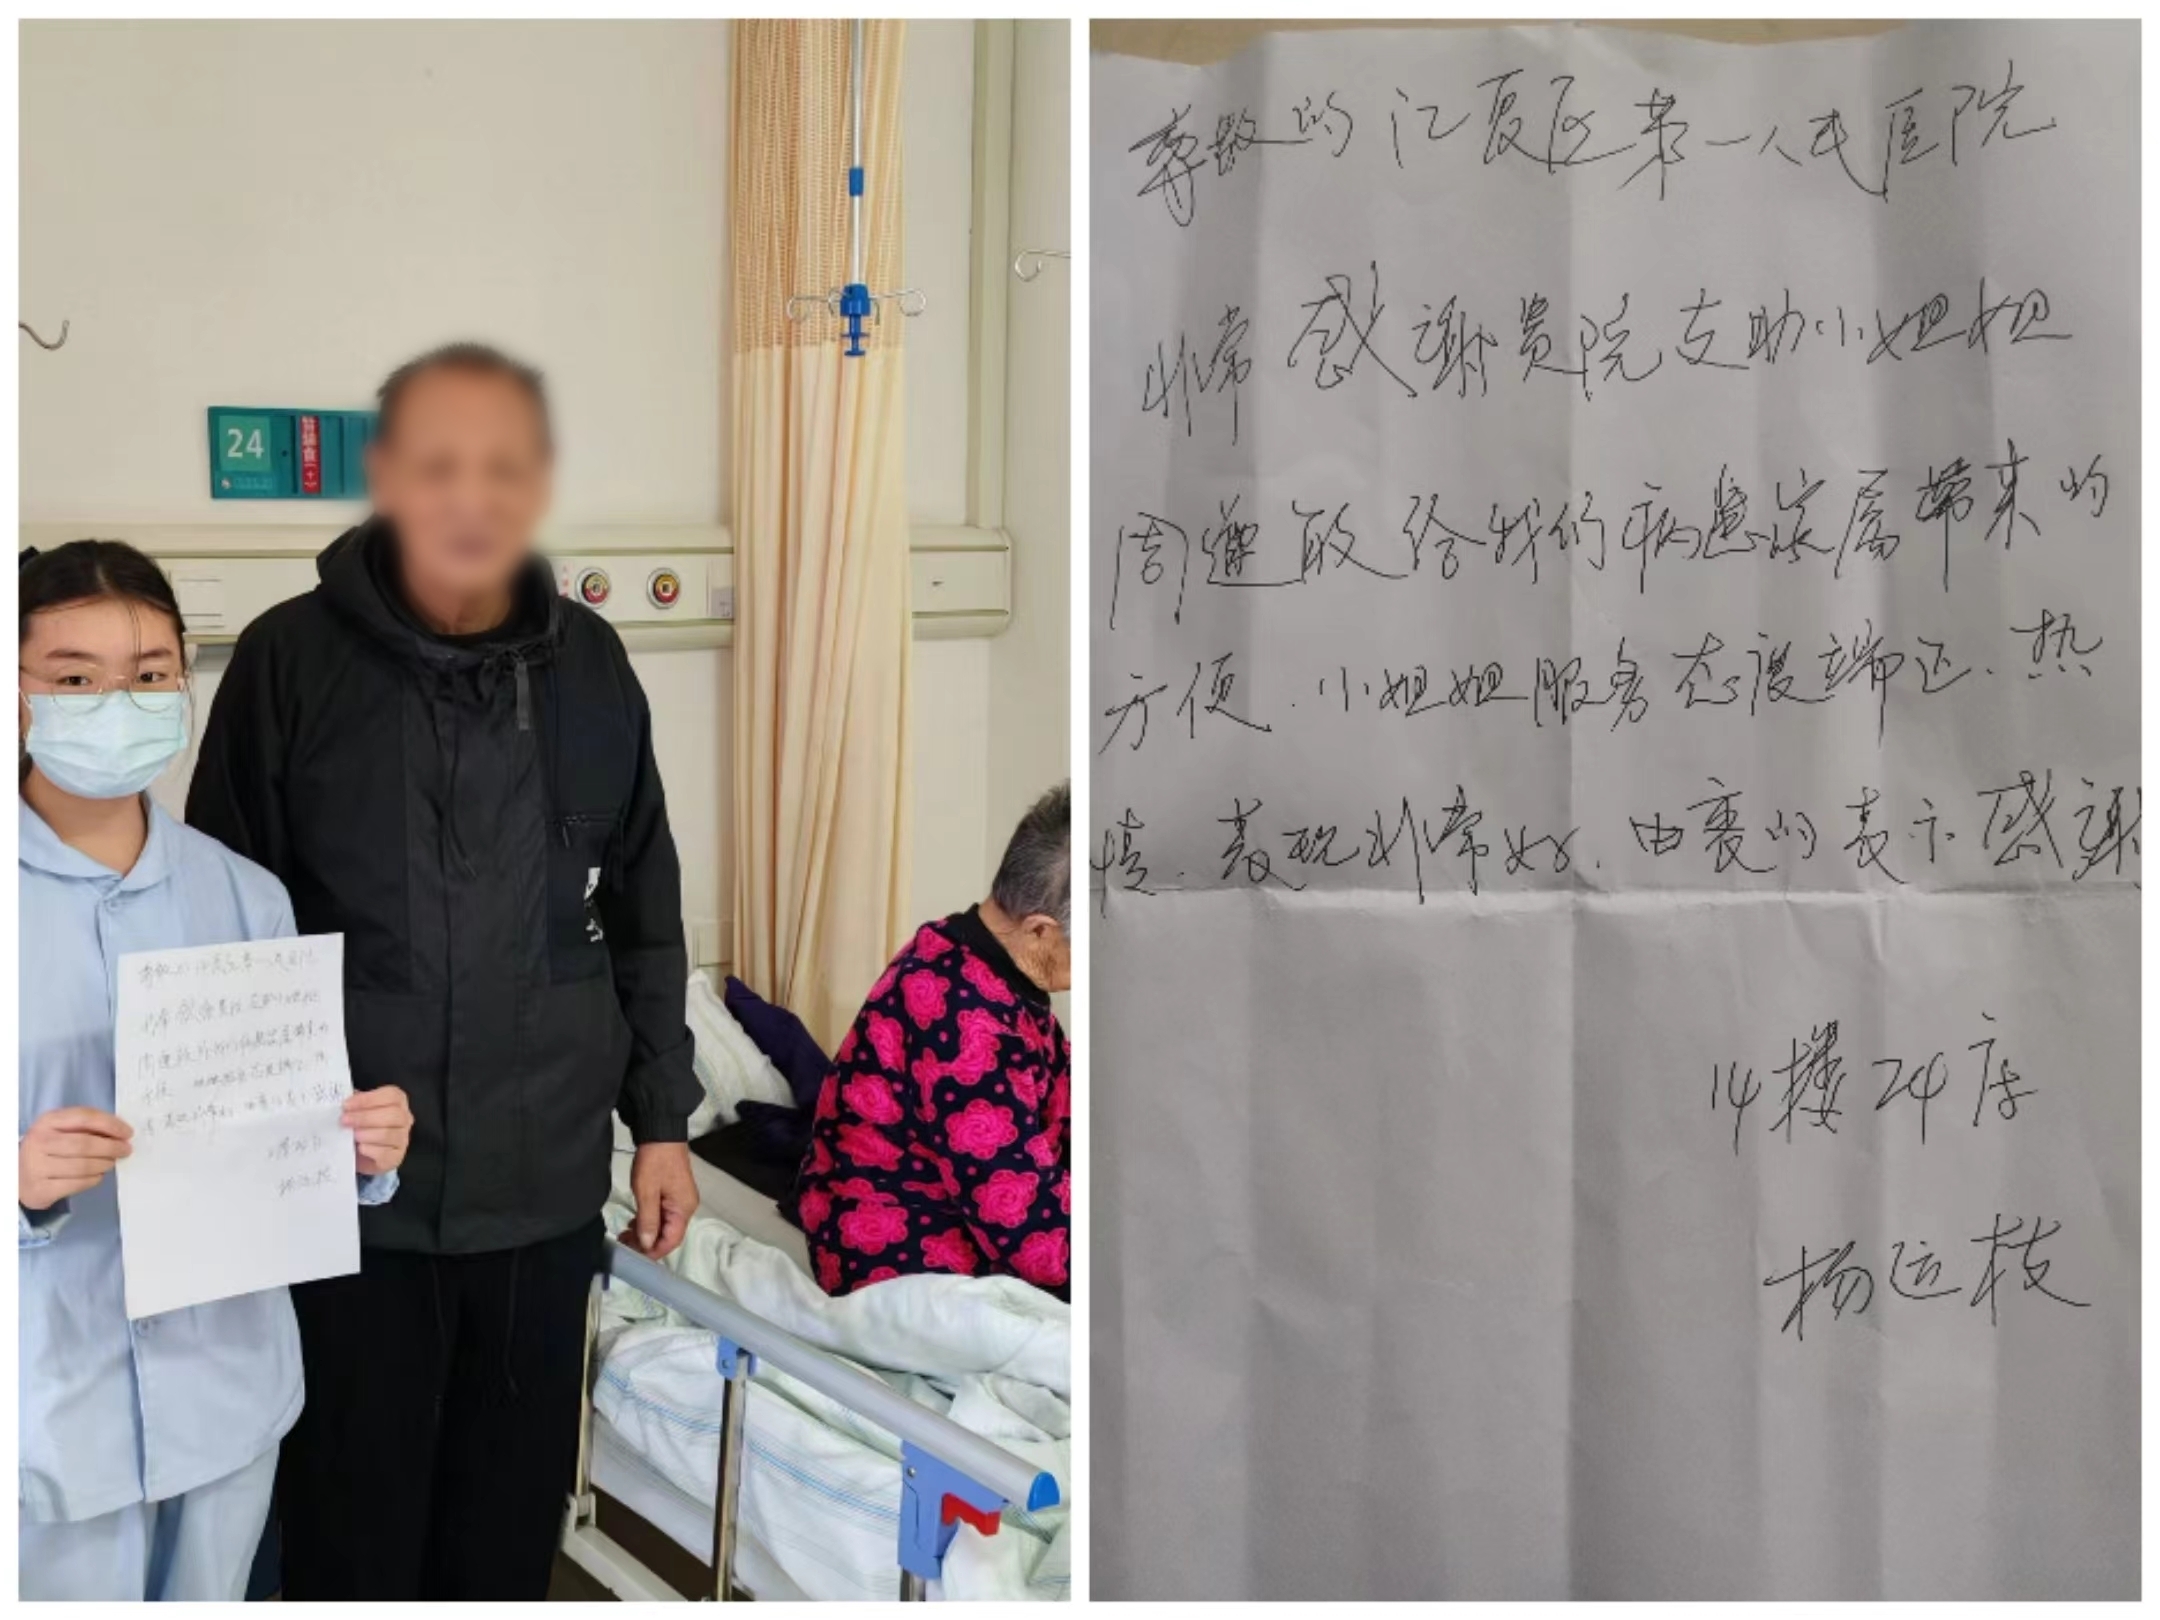 24
尊敬的江夏区第一人民医院
非常感谢贵院支助小姐姐
周遵敏给我们病患家属带来的
方便.小姐姐服务态度端正、热
情.表现非常好.由衷的表示感谢
14楼24床
杨运枝